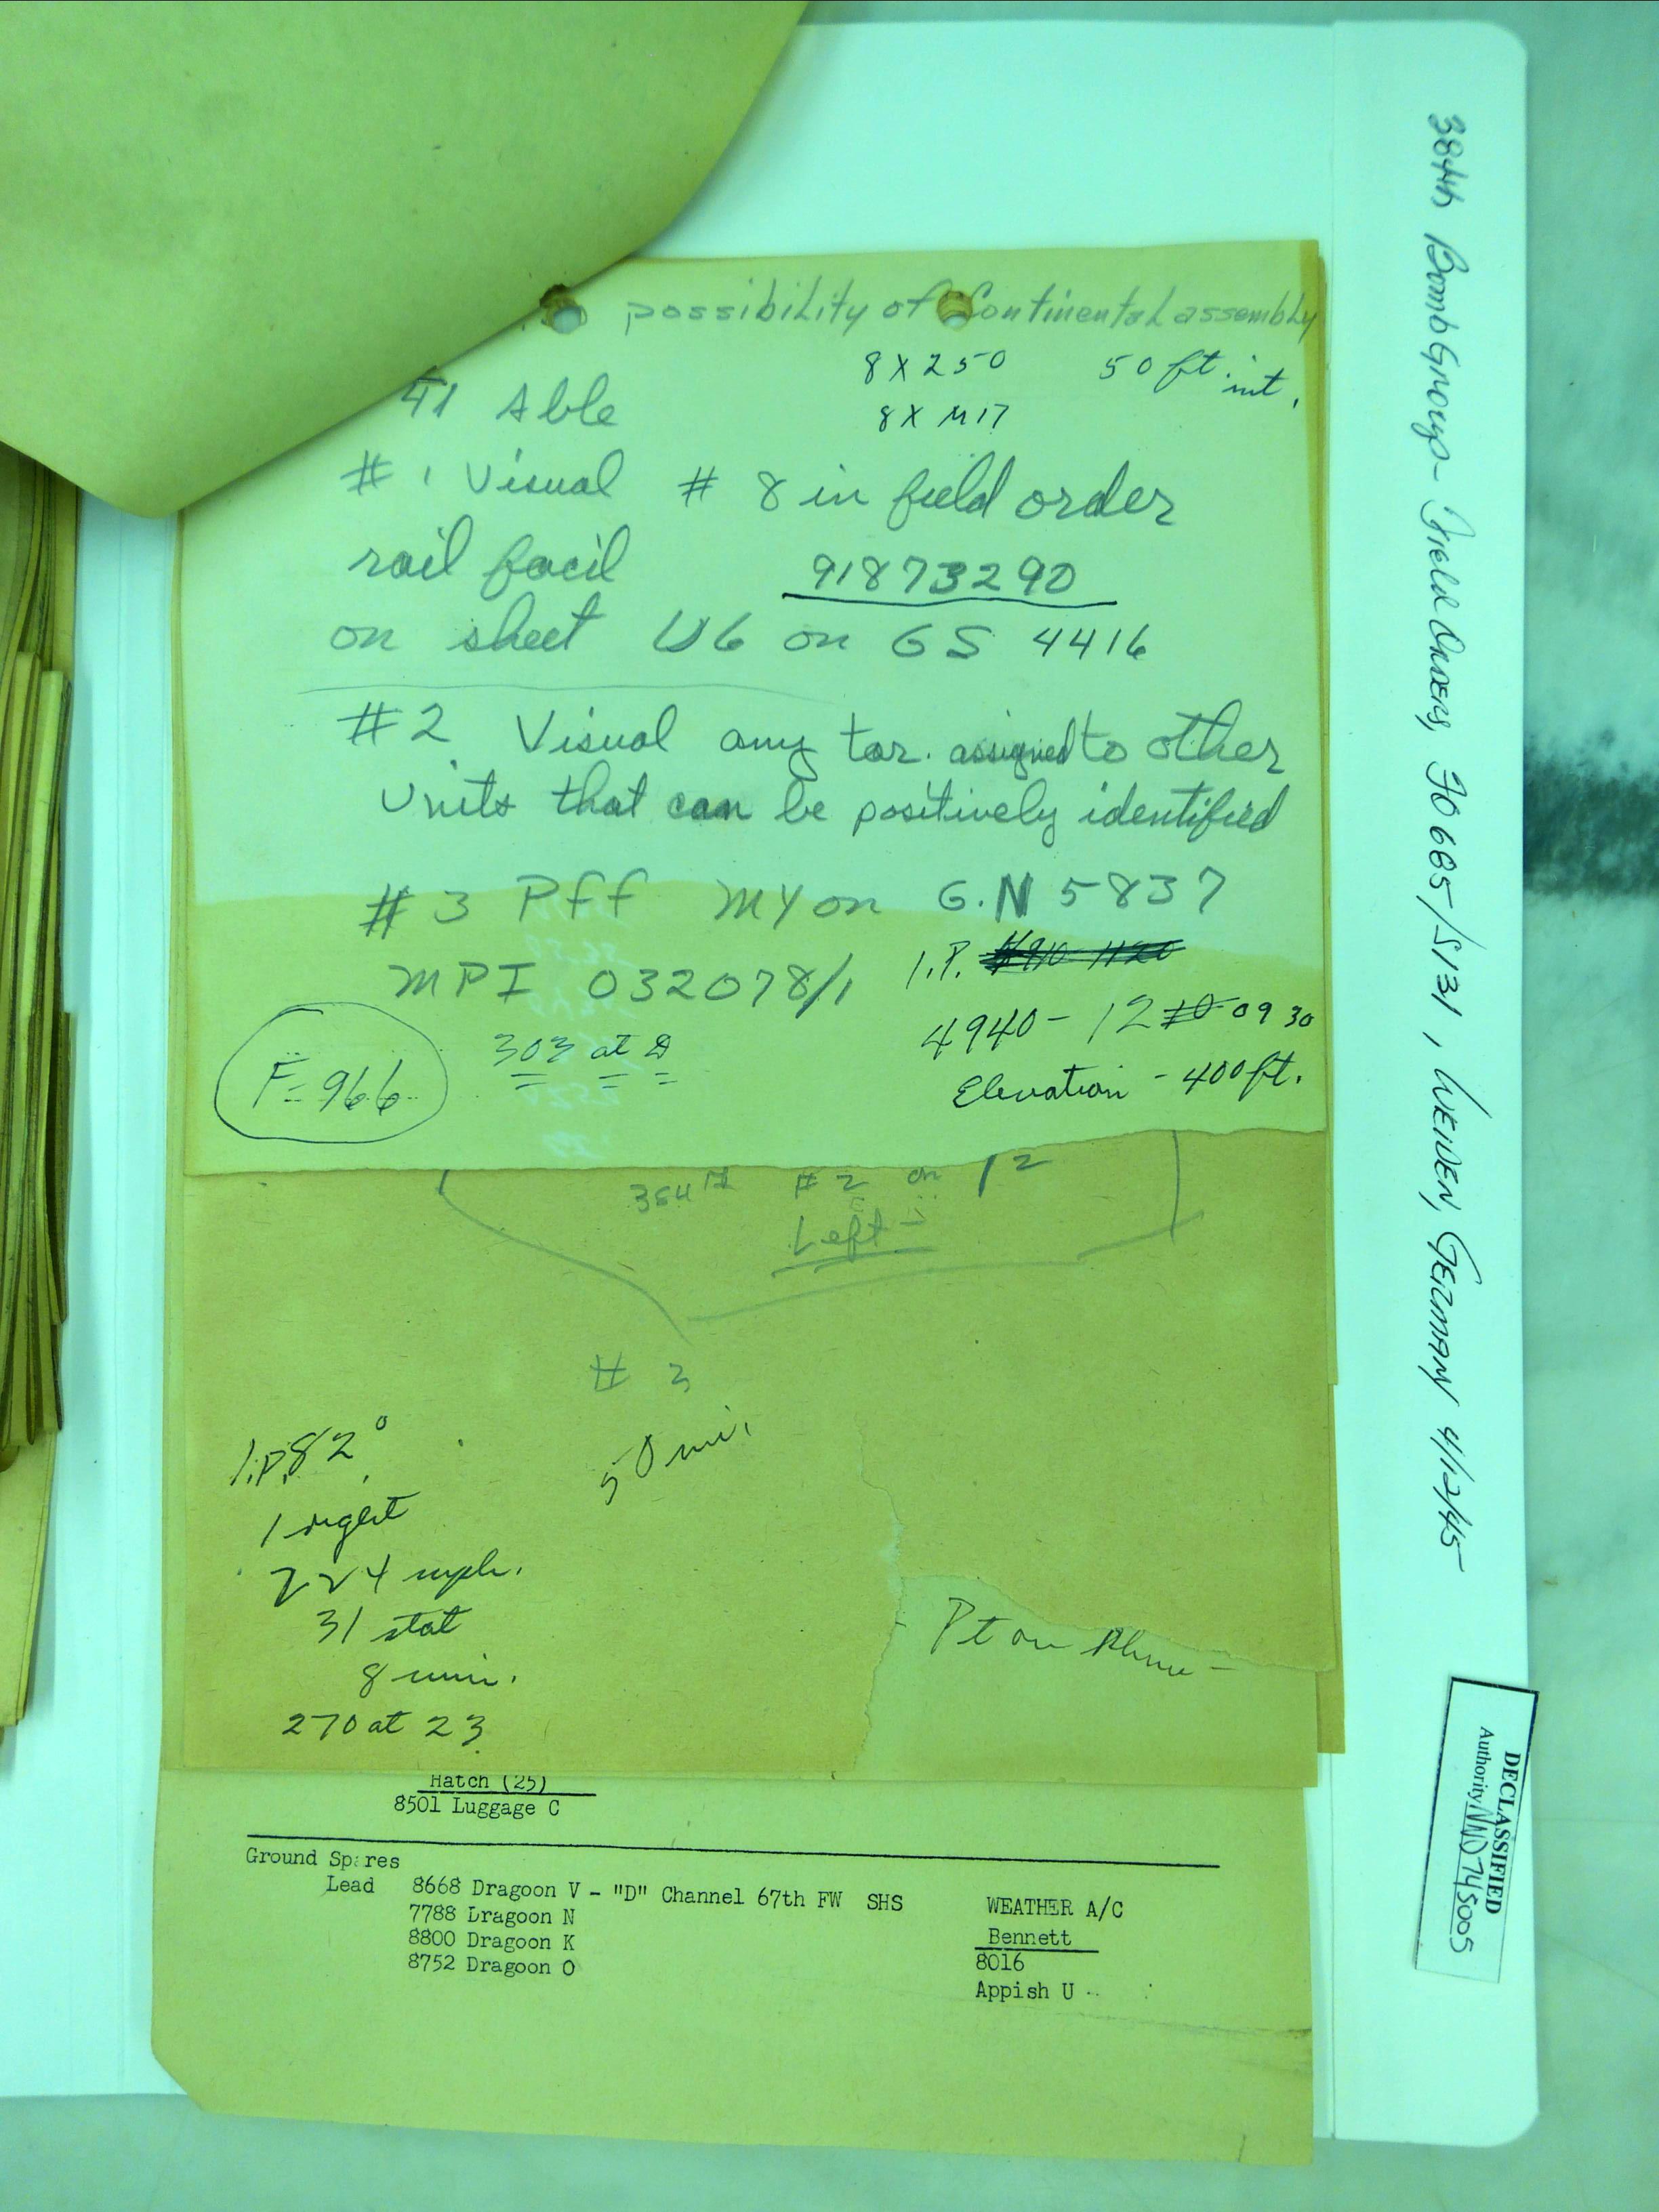 possibility of Continental assembly
8 X 250 50 ft. int.
41 Able
8 X M17
# 1 Visual # 8 in field order
rail facil 91873290
on sheet U6 on GS 4416
#2 Visual any tar. assigned to other
Units that can be positively identified
# 3 Pff MY on G.N 5837
MPI 032078/1
I.P.
4940 - 12 0930
Elevation - 400 ft.
F = 966
303 at
384th # 2 on 12
Left
# 3
I.P. 82°
50 mi.
1 right
224 mph.
31 stat
8 min.
270 at 23
Pt on
Hatch (25)
8501 Luggage C
Ground Spares
Lead 8668 Dragoon V - "D" Channel 67th FW SHS
7788 Dragoon N
8800 Dragoon K
8752 Dragoon O
WEATHER A/C
Bennett
8016
Appish U
384th Bomb Group - Field Orders, FO 665/S131, WEIDEN, GERMANY 4/12/45
DECLASSIFIED
Authority NND 745005